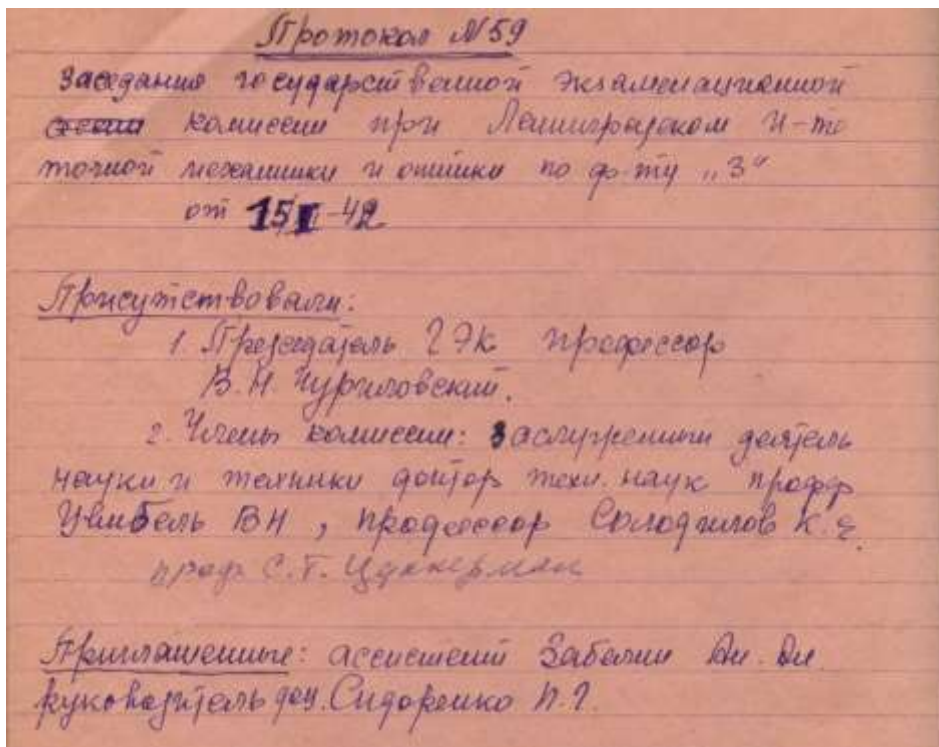 Протокол №59
заседания государственной экзаменационной
комиссии при Ленинградском и-те
точной механики и оптики по ф-ту „3“
от 15/ -42
Присутствовали:
1. Председатель ГЭК профессор
В.Н. Чуриловский.
2. Члены комиссии: заслуженный деятель
науки и техники доктор техн. наук проф
ВН, профессор Солодилов К.Е.
проф С.Т. Цуккерман
Приглашенные: ассистент Забелин
руководитель доц. Сидоренко П.Г.